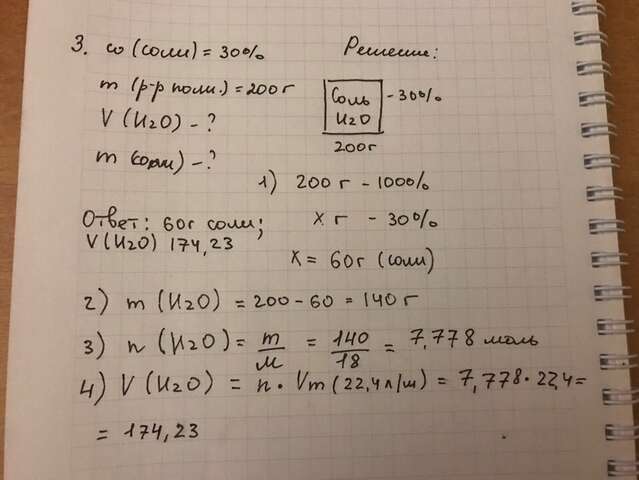 3. ω (соли) = 30%
Решение:
m (р-р поли.) = 200 г
Соль
H2O
- 30%
200г
V (H2O) - ?
m (соли) - ?
1) 200 г - 100%
x г - 30%
x = 60г (соли)
Ответ: 60г соли;
V(H2O) 174,23
2) m (H2O) = 200 - 60 = 140 г
3) n (H2O) = m/M = 140/18 = 7,778 моль
4) V (H2O) = n · Vm (22,4 л/м) = 7,778 · 22,4 =
= 174,23